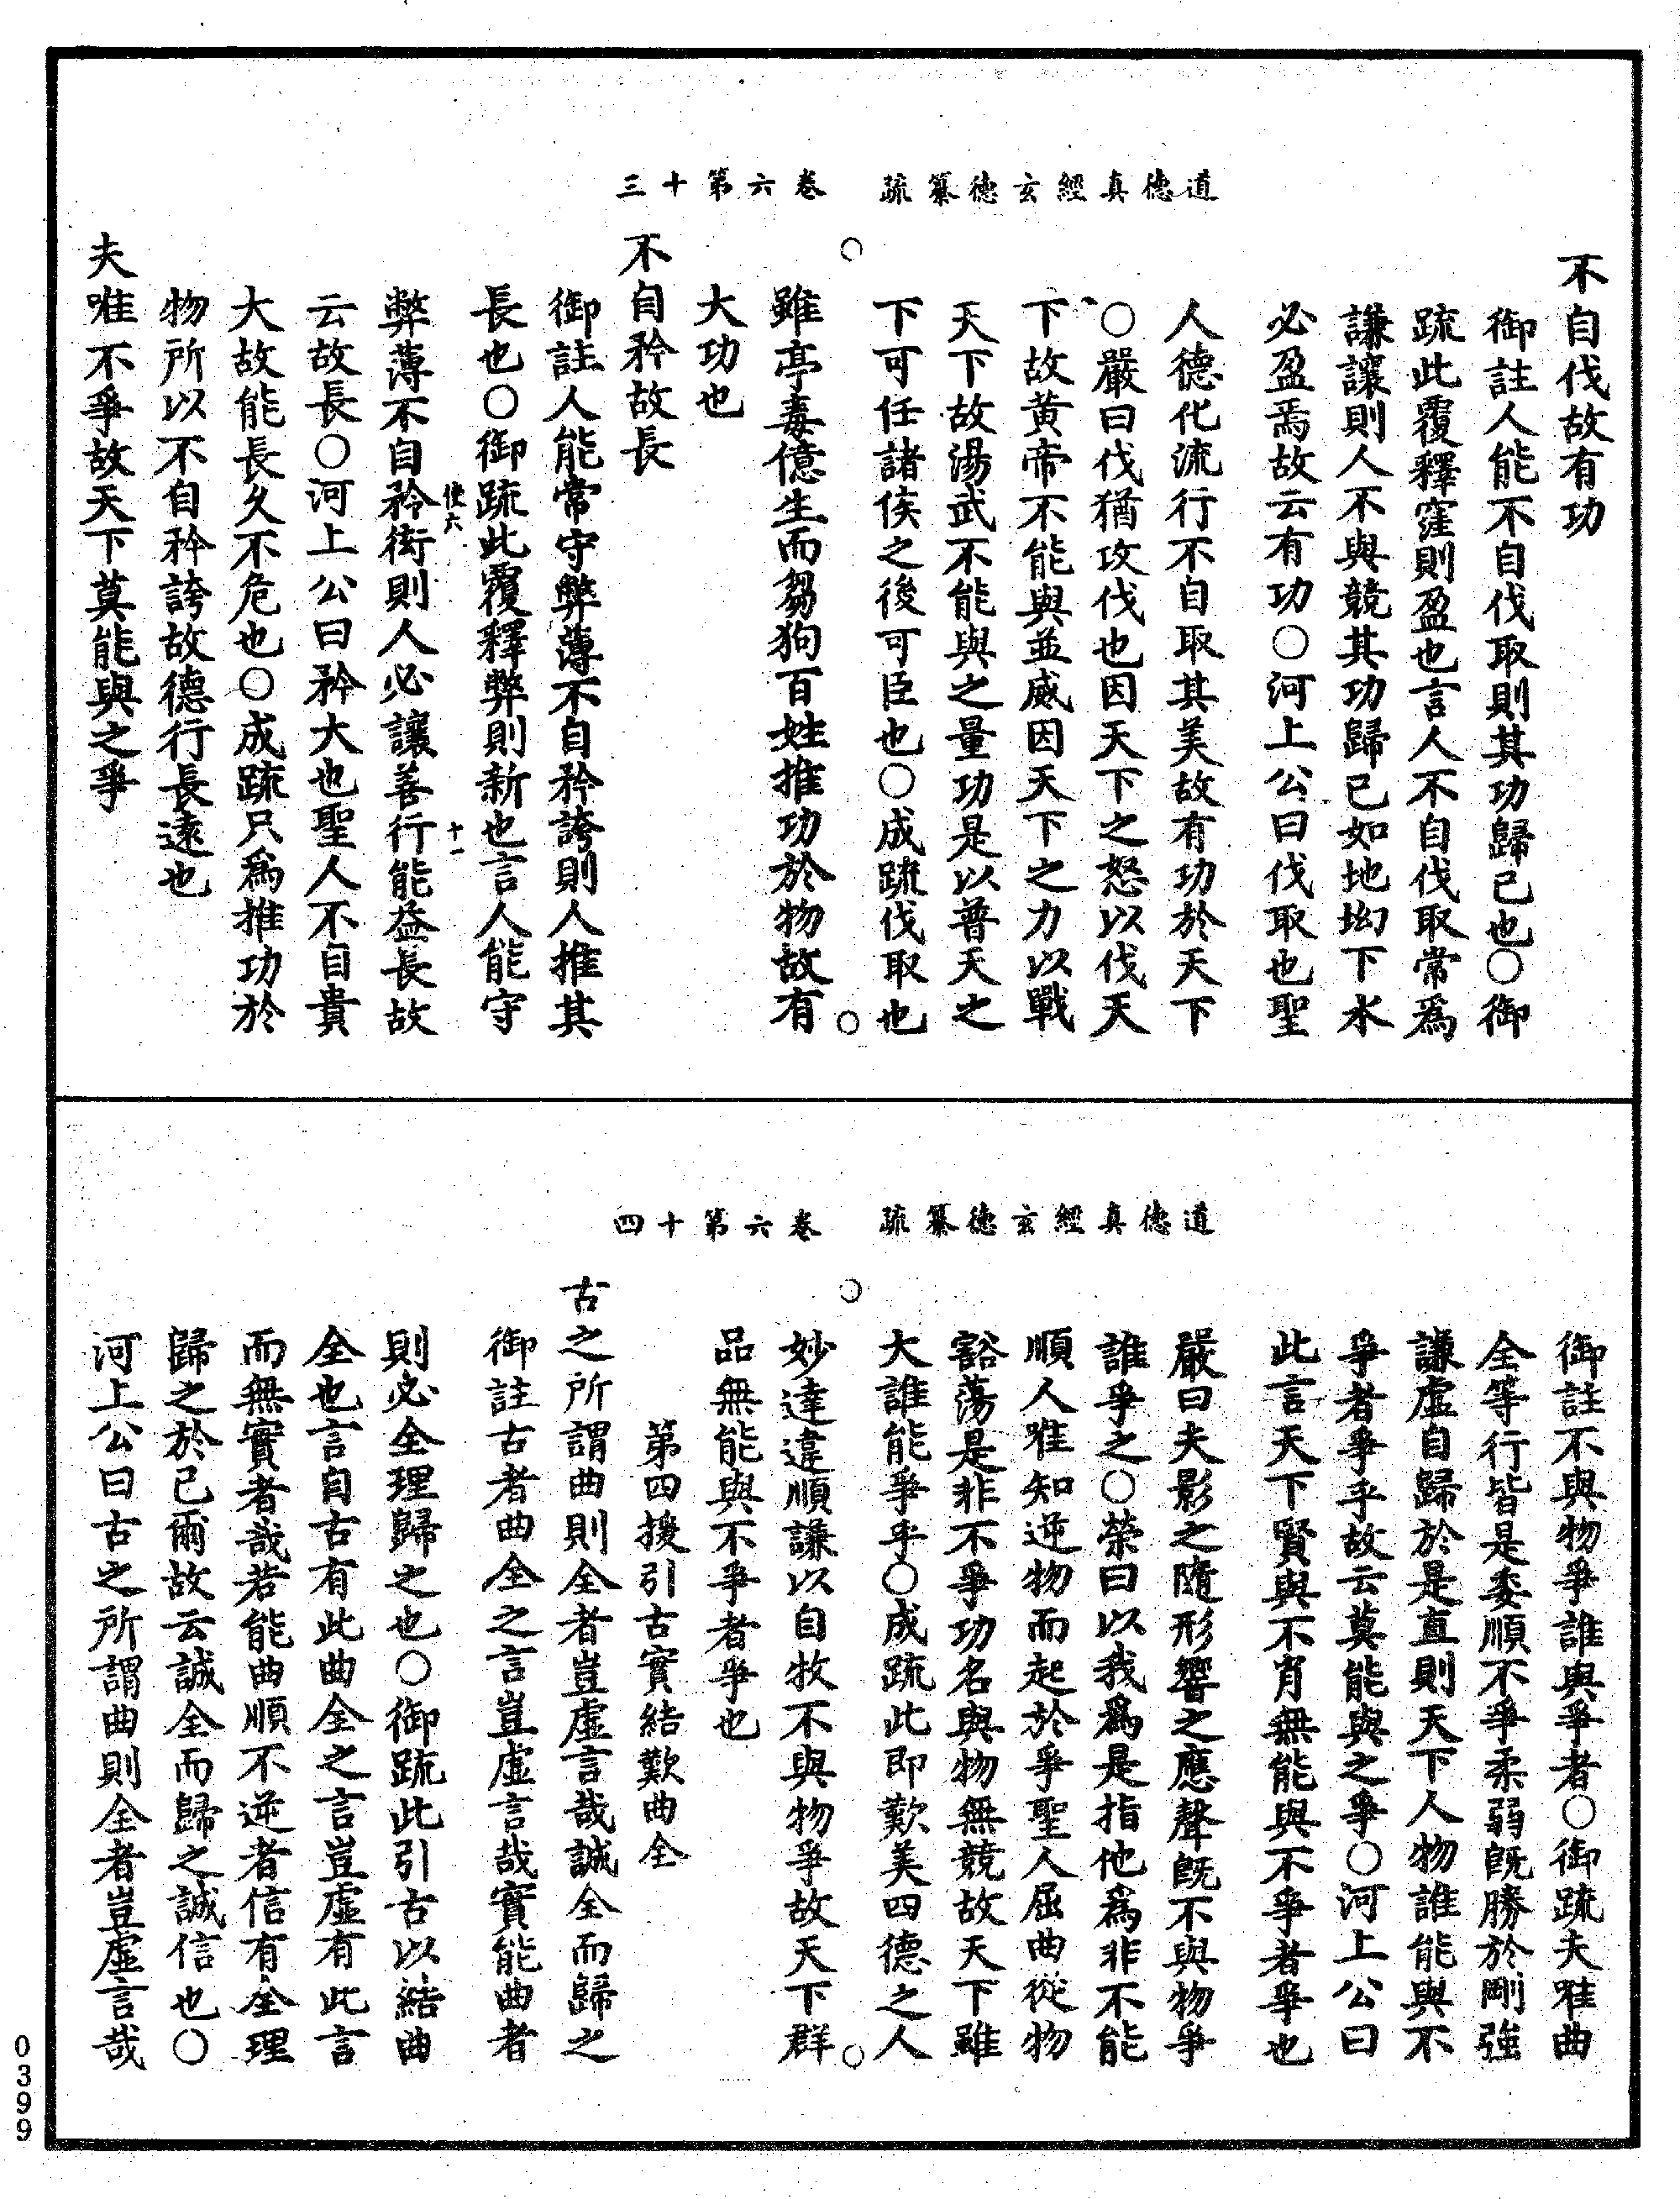 道德真經玄德纂疏　卷六第十三
不自伐故有功
御註人能不自伐取則其功歸己也○御
疏此覆釋窪則盈也言人不自伐取常爲
謙讓則人不與競其功歸己如地坳下水
必盈焉故云有功○河上公曰伐取也聖
人德化流行不自取其美故有功於天下
○嚴曰伐猶攻伐也因天下之怒以伐天
下故黃帝不能與並威因天下之力以戰
天下故湯武不能與之量功是以普天之
下可任諸侯之後可臣也○成疏伐取也
雖亭毒億生而芻狗百姓推功於物故有
大功也
不自矜故長
御註人能常守弊薄不自矜誇則人推其
長也○御疏此覆釋弊則新也言人能守
使六　十一
弊薄不自矜衒則人必讓善行能益長故
云故長○河上公曰矜大也聖人不自貴
大故能長久不危也○成疏只爲推功於
物所以不自矜誇故德行長遠也
夫唯不爭故天下莫能與之爭
道德真經玄德纂疏　卷六第十四
御註不與物爭誰與爭者○御疏夫唯曲
全等行皆是委順不爭柔弱既勝於剛強
謙虛自歸於是直則天下人物誰能與不
爭者爭乎故云莫能與之爭○河上公曰
此言天下賢與不肖無能與不爭者爭也
嚴曰夫影之隨形響之應聲既不與物爭
誰爭之○榮曰以我爲是指他爲非不能
順人唯知逆物而起於爭聖人屈曲從物
豁蕩是非不爭功名與物無競故天下雖
大誰能爭乎○成疏此即歎美四德之人
妙達違順謙以自牧不與物爭故天下群
品無能與不爭者爭也
第四援引古實結歎曲全
古之所謂曲則全者豈虛言哉誠全而歸之
御註古者曲全之言豈虛言哉實能曲者
則必全理歸之也○御疏此引古以結曲
全也言自古有此曲全之言豈虛有此言
而無實者哉若能曲順不逆者信有全理
歸之於己爾故云誠全而歸之誠信也○
河上公曰古之所謂曲則全者豈虛言哉
0399